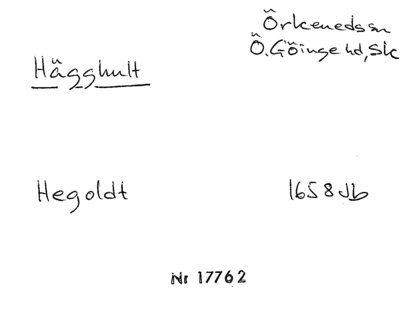 Örkeneds sn
Ö. Göinge hd, Sk
Hägghult
Hegoldt
1658 Jb
Nr 17762